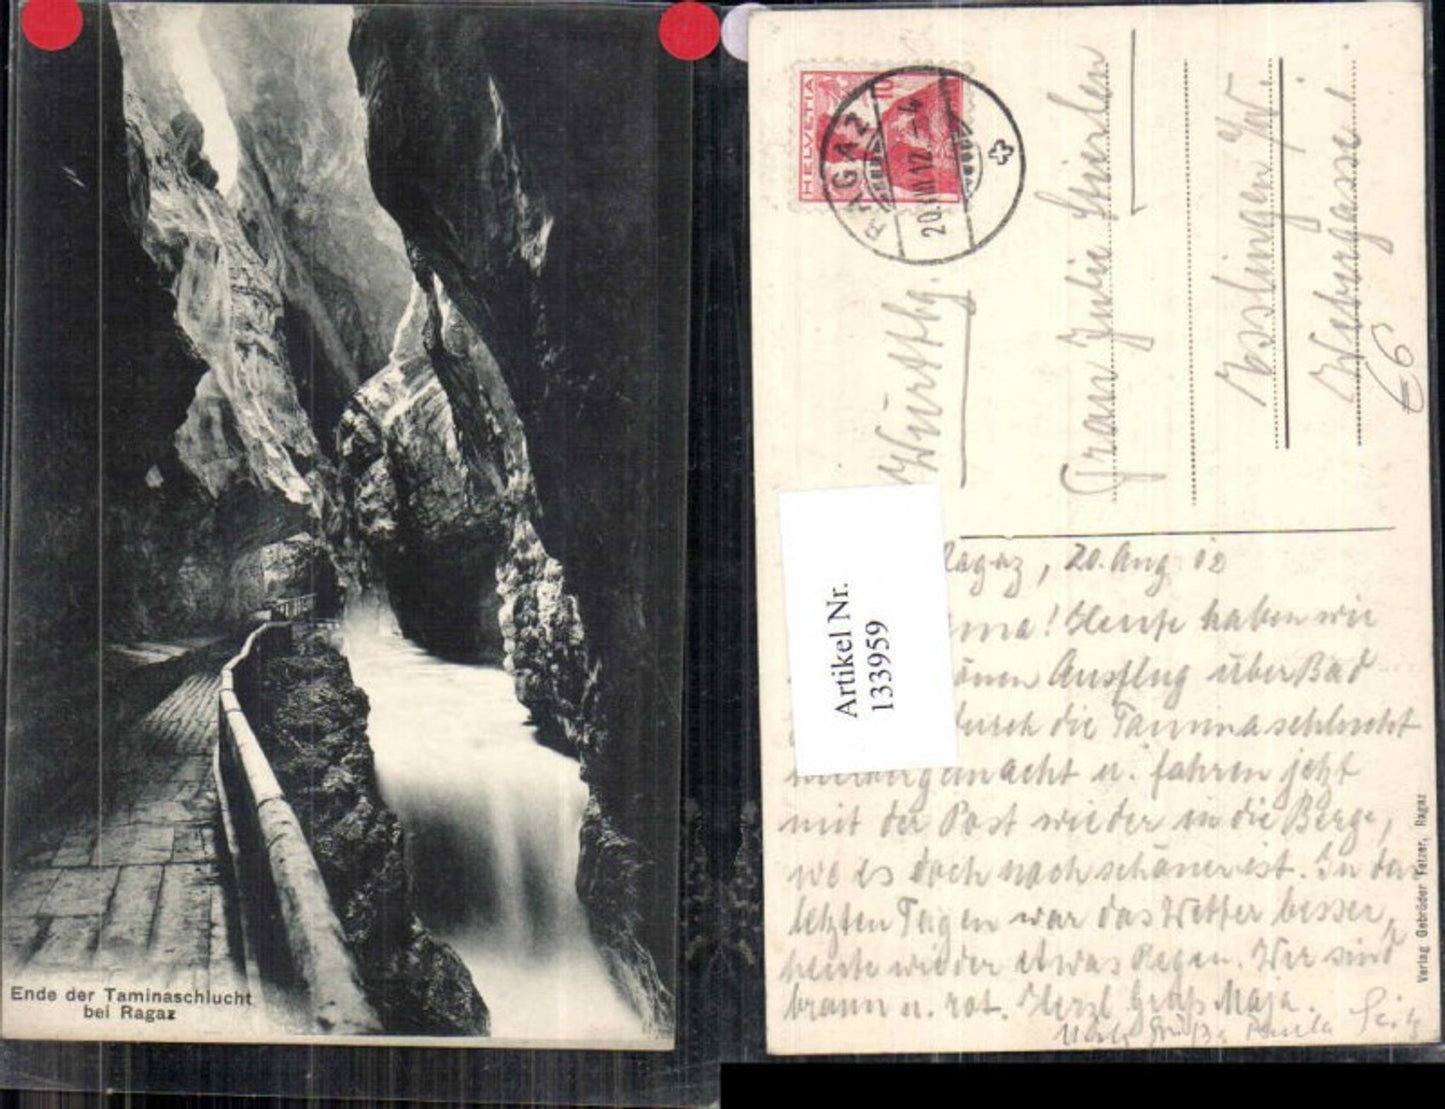 Ende der Taminaschlucht
bei Ragaz
HELVETIA
10
RAGAZ
20.VIII.12.-4
Württbg.
Frau Julie
Esslingen a/N.
Webergasse 1
€6
Artikel Nr.
133959
Ragaz, 20. Aug 12
! Heute haben wir
Ausflug über Bad
durch die Taminaschlucht
gemacht u. fahren jetzt
mit der Post wieder in die Berge,
wo es doch noch schöner ist. In den
letzten Tagen war das Wetter besser,
heute wieder etwas Regen. Wir sind
braun u. rot. Herzl. Gruß
Grüße Paula
Verlag Gebrüder Fetzer, Ragaz